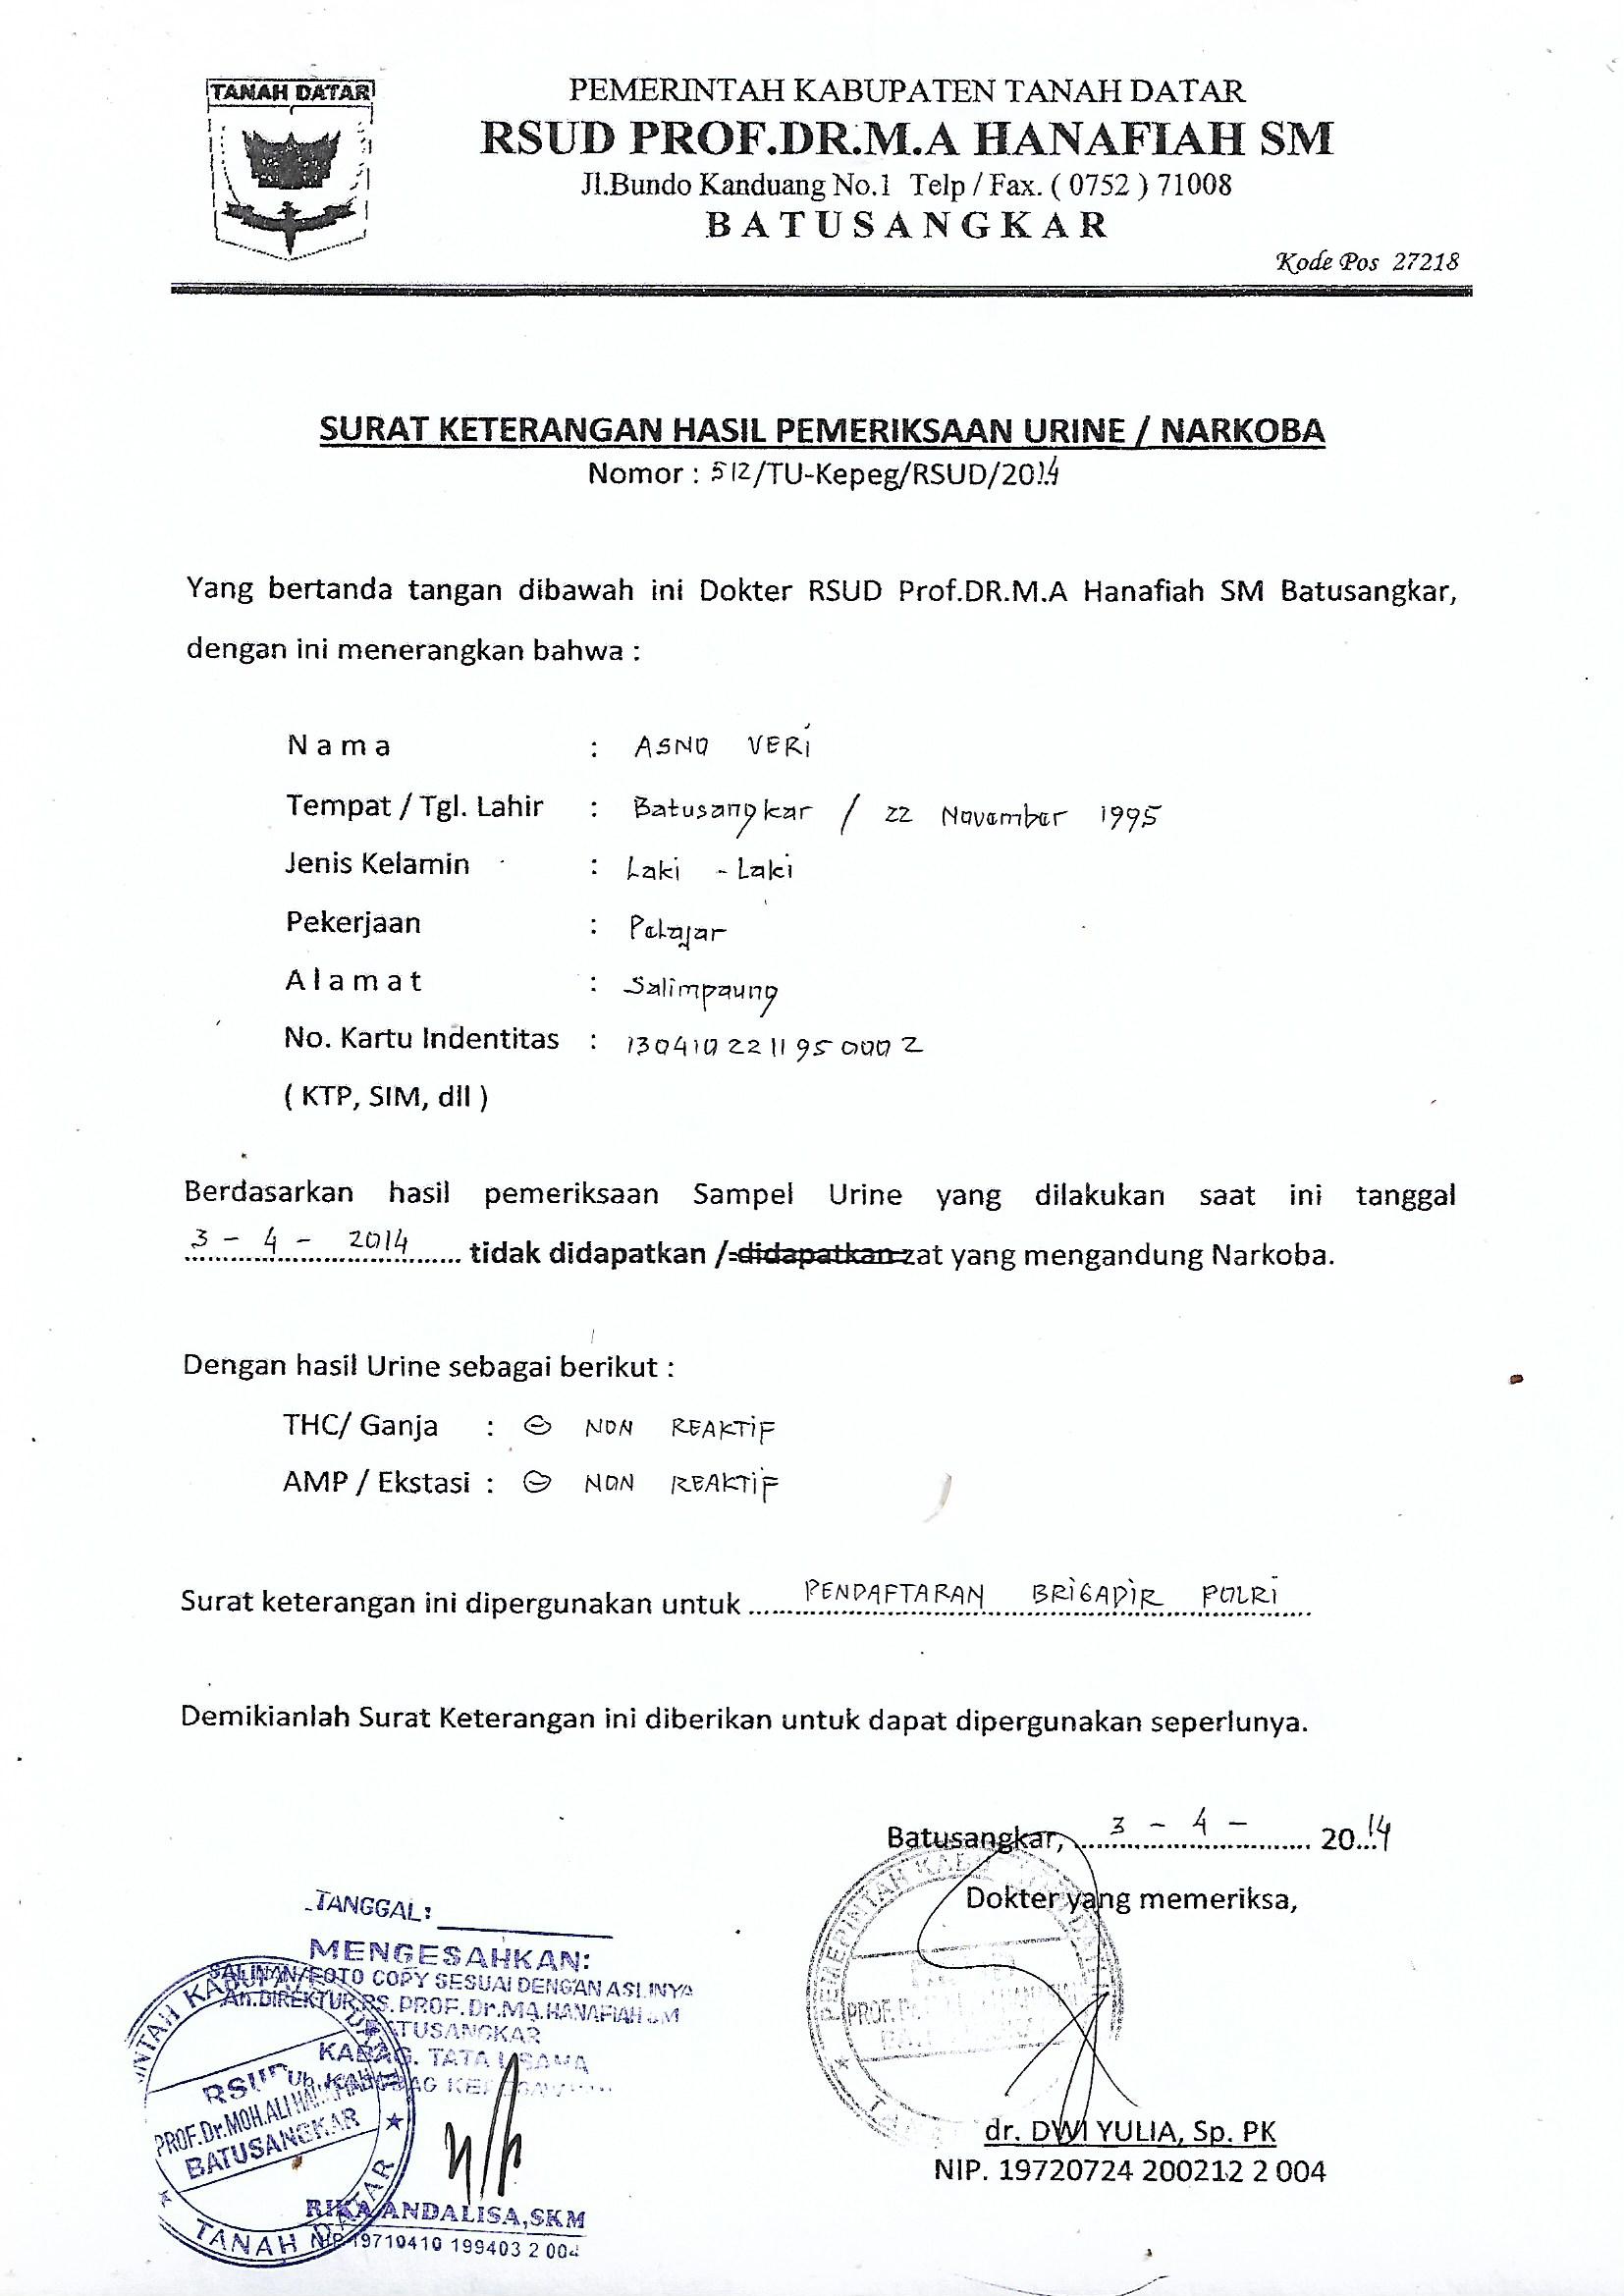 TANAH DATAR
PEMERINTAH KABUPATEN TANAH DATAR
RSUD PROF.DR.M.A HANAFIAH SM
Jl.Bundo Kanduang No.1 Telp / Fax. ( 0752 ) 71008
BATUSANGKAR
Kode Pos 27218
SURAT KETERANGAN HASIL PEMERIKSAAN URINE / NARKOBA
Nomor : 512/TU-Kepeg/RSUD/2014
Yang bertanda tangan dibawah ini Dokter RSUD Prof.DR.M.A Hanafiah SM Batusangkar,
dengan ini menerangkan bahwa :
Nama : ASNO VERI
Tempat / Tgl. Lahir : Batusangkar / 22 November 1995
Jenis Kelamin : Laki - Laki
Pekerjaan : Pelajar
Alamat : Salimpaung
No. Kartu Indentitas : 1304102211950002
( KTP, SIM, dll )
Berdasarkan hasil pemeriksaan Sampel Urine yang dilakukan saat ini tanggal
3 - 4 - 2014 tidak didapatkan / didapatkan zat yang mengandung Narkoba.
Dengan hasil Urine sebagai berikut :
THC/ Ganja : ⊖ NON REAKTIF
AMP / Ekstasi : ⊖ NON REAKTIF
Surat keterangan ini dipergunakan untuk PENDAFTARAN BRIGADIR POLRI
Demikianlah Surat Keterangan ini diberikan untuk dapat dipergunakan seperlunya.
Batusangkar, 3 - 4 - 2014
Dokter yang memeriksa,
dr. DWI YULIA, Sp. PK
NIP. 19720724 200212 2 004
TANGGAL:
MENGESAHKAN:
SALINAN/FOTO COPY SESUAI DENGAN ASLINYA
An.DIREKTUR RS. PROF.Dr.MA.HANAFIAH SM
BATUSANGKAR
KABAG. TATA USAHA
RSUD
PROF.Dr.MOH.ALI
BATUSANGKAR
TANAH DATAR
RIKA ANDALISA,SKM
NIP 19710410 199403 2 004